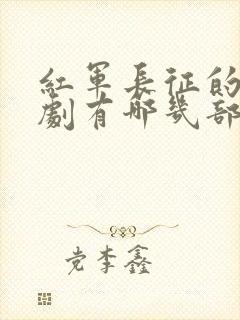 紅軍長征的
劇有哪幾部
党李鑫